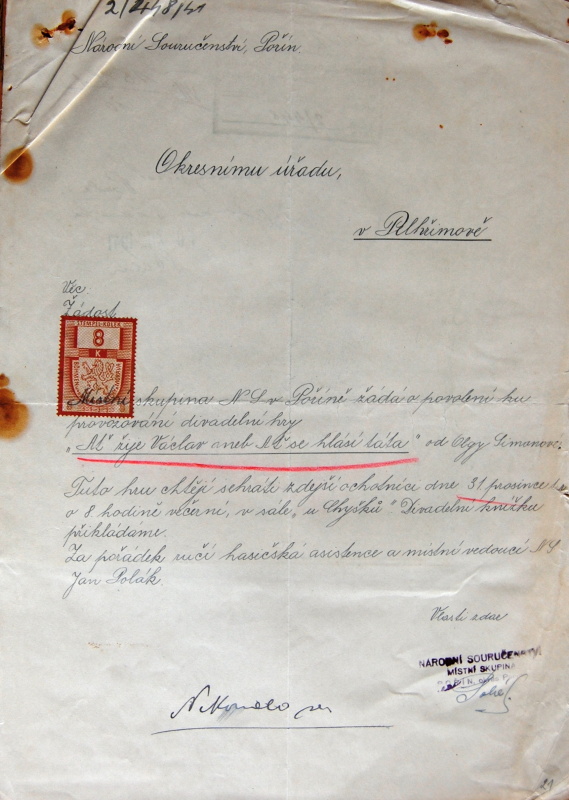 Národní Souručenství, Pořín.
Okresnímu úřadu,
v Pelhřimově
Věc:
Žádost
STEMPEL-KOLEK
8
K
Místní skupina N.S. v Poříně žádá o povolení ku
provozování divadelní hry
„Ať žije Václav aneb Ať se hlásí táta" od Olgy
Tuto hru chtějí sehráti zdejší ochotníci dne 31. prosince
o 8 hodině večerní, v sále „u Chyšků". Divadelní knížku
přikládáme.
Za pořádek ručí hasičská asistence a místní vedoucí NS
Jan Polák.
Vlasti zdar
NÁRODNÍ SOURUČENSTVÍ
MÍSTNÍ SKUPINA
Nekonalo se
21